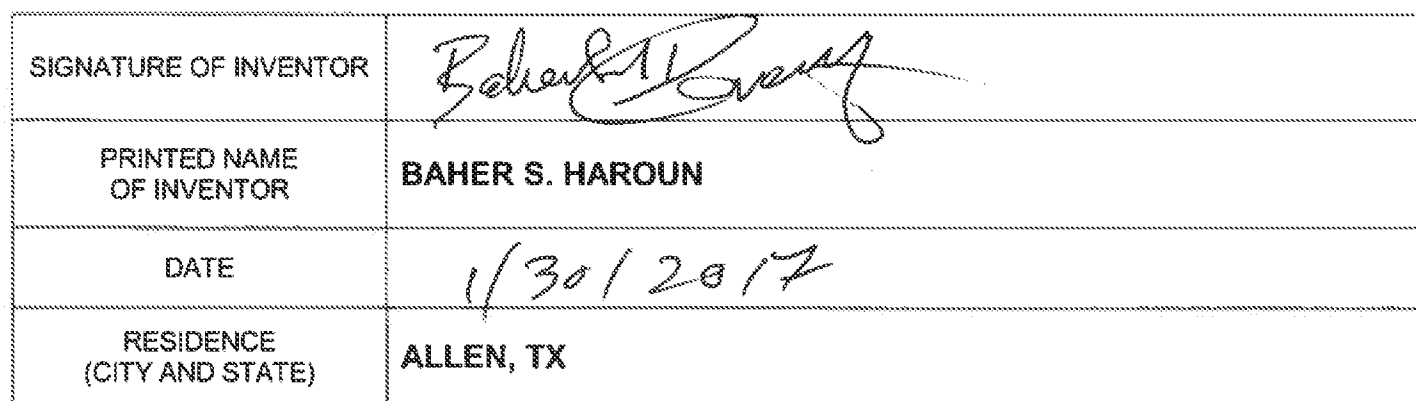 SIGNATURE OF INVENTOR
PRINTED NAME
OF INVENTOR
BAHER S. HAROUN
DATE
1/30/2017
RESIDENCE
(CITY AND STATE)
ALLEN, TX